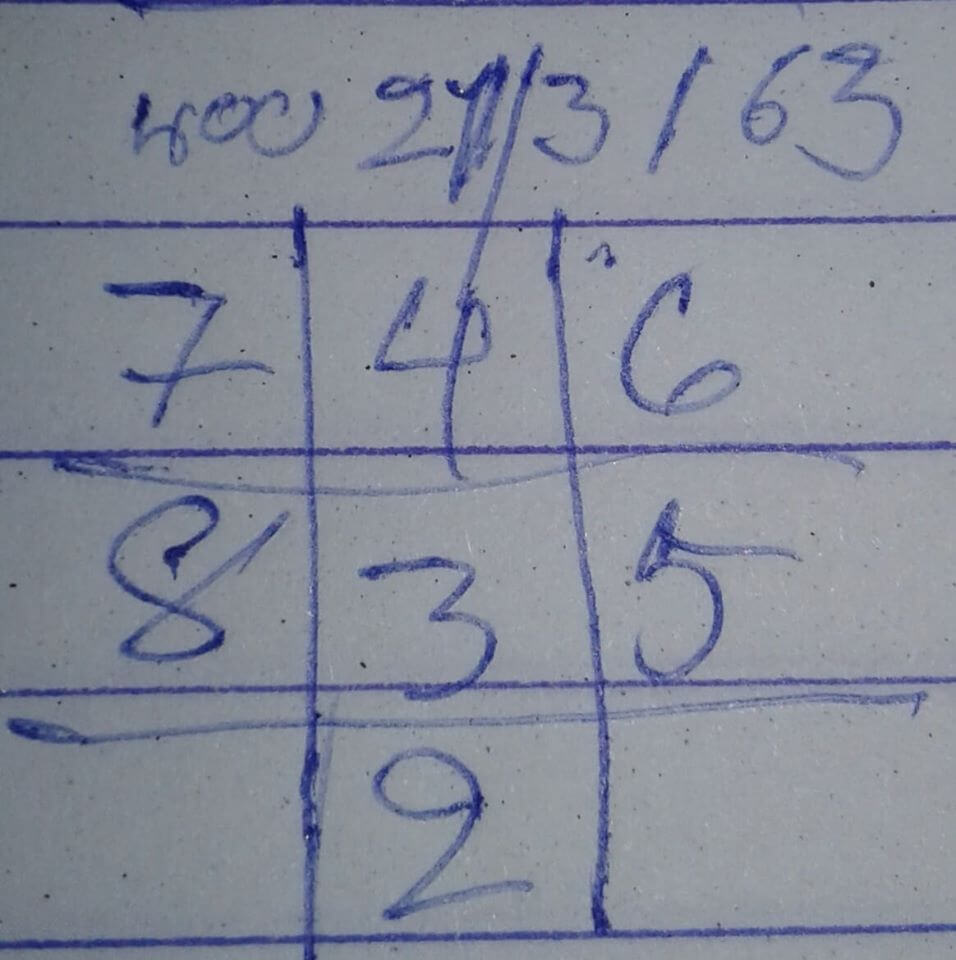 ฮอย 21/3/63
7 4 6
8 3 5
2